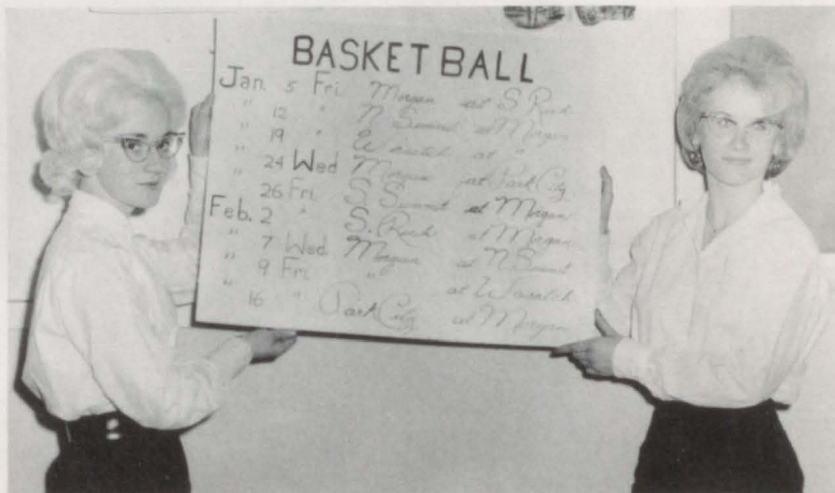 BASKETBALL
Jan. 5 Fri. Morgan at S. Rich
" 12 " N. Summit at Morgan
" 19 " Wasatch at "
" 24 Wed Morgan at Park City
" 26 Fri. S. Summit at Morgan
Feb. 2 " S. Rich at Morgan
" 7 Wed Morgan at N. Summit
" 9 Fri. " at Wasatch
" 16 " Park City at Morgan